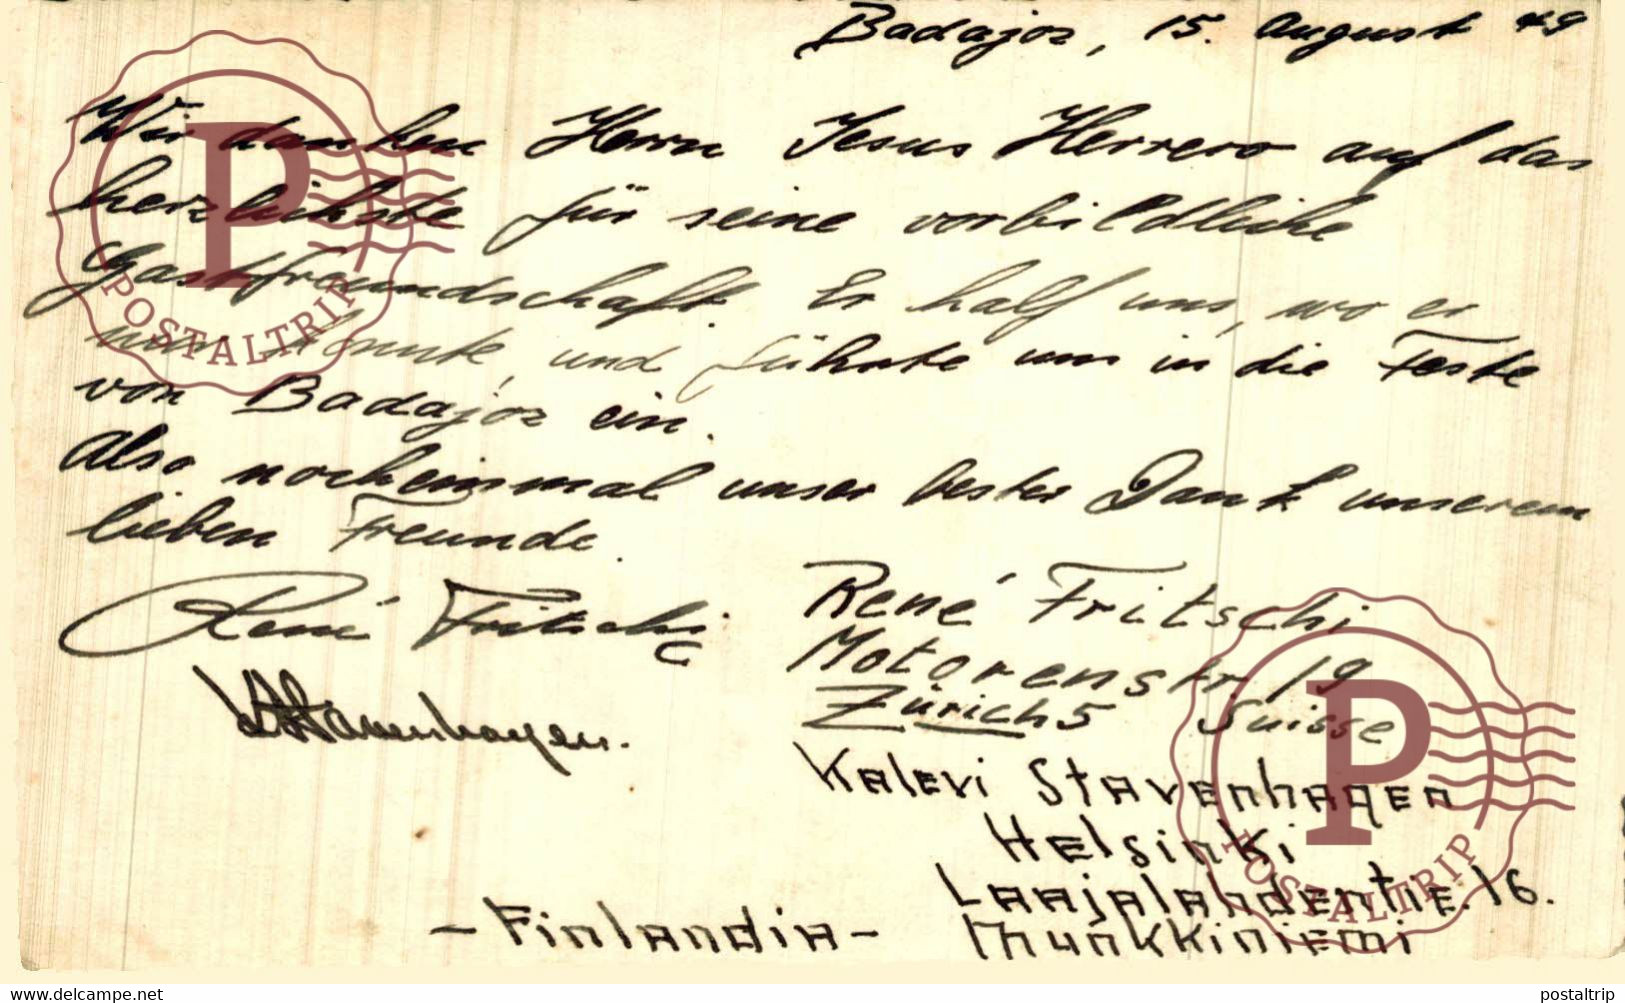 Badajoz, 15. August 49
Wir danken Herrn Jesus Herrero auf das
herzlichste für seine vorbildliche
Gastfreundschaft. Er half uns, wo er
nur konnte, und führte uns in die Feste
von Badajoz ein.
Also nocheinmal unser bester Dank unserem
lieben Freunde.
René Fritschi
René Fritschi
Motorenstr 19
Zürich 5 Suisse
Stavenhagen.
Kalevi Stavenhagen
Helsinki
Laajalahdentie. 16.
- Finlandia - Munkkiniemi
P
POSTALTRIP
P
POSTALTRIP
www.delcampe.net
postaltrip